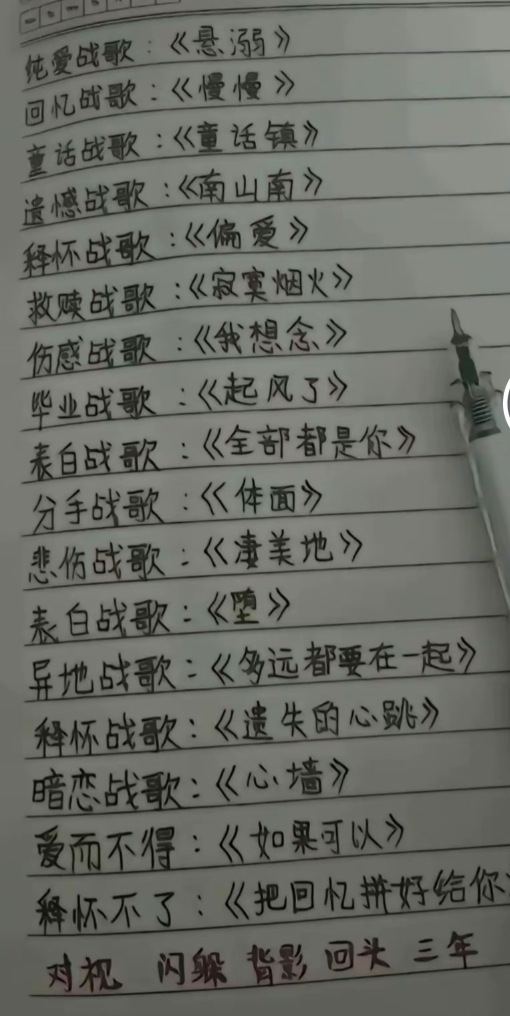 纯爱战歌：《悬溺》
回忆战歌：《慢慢》
童话战歌：《童话镇》
遗憾战歌：《南山南》
释怀战歌：《偏爱》
救赎战歌：《寂寞烟火》
伤感战歌：《我想念》
毕业战歌：《起风了》
表白战歌：《全部都是你》
分手战歌：《体面》
悲伤战歌：《凄美地》
表白战歌：《堕》
异地战歌：《多远都要在一起》
释怀战歌：《遗失的心跳》
暗恋战歌：《心墙》
爱而不得：《如果可以》
释怀不了：《把回忆拼好给你》
对视 闪躲 背影 回头 三年